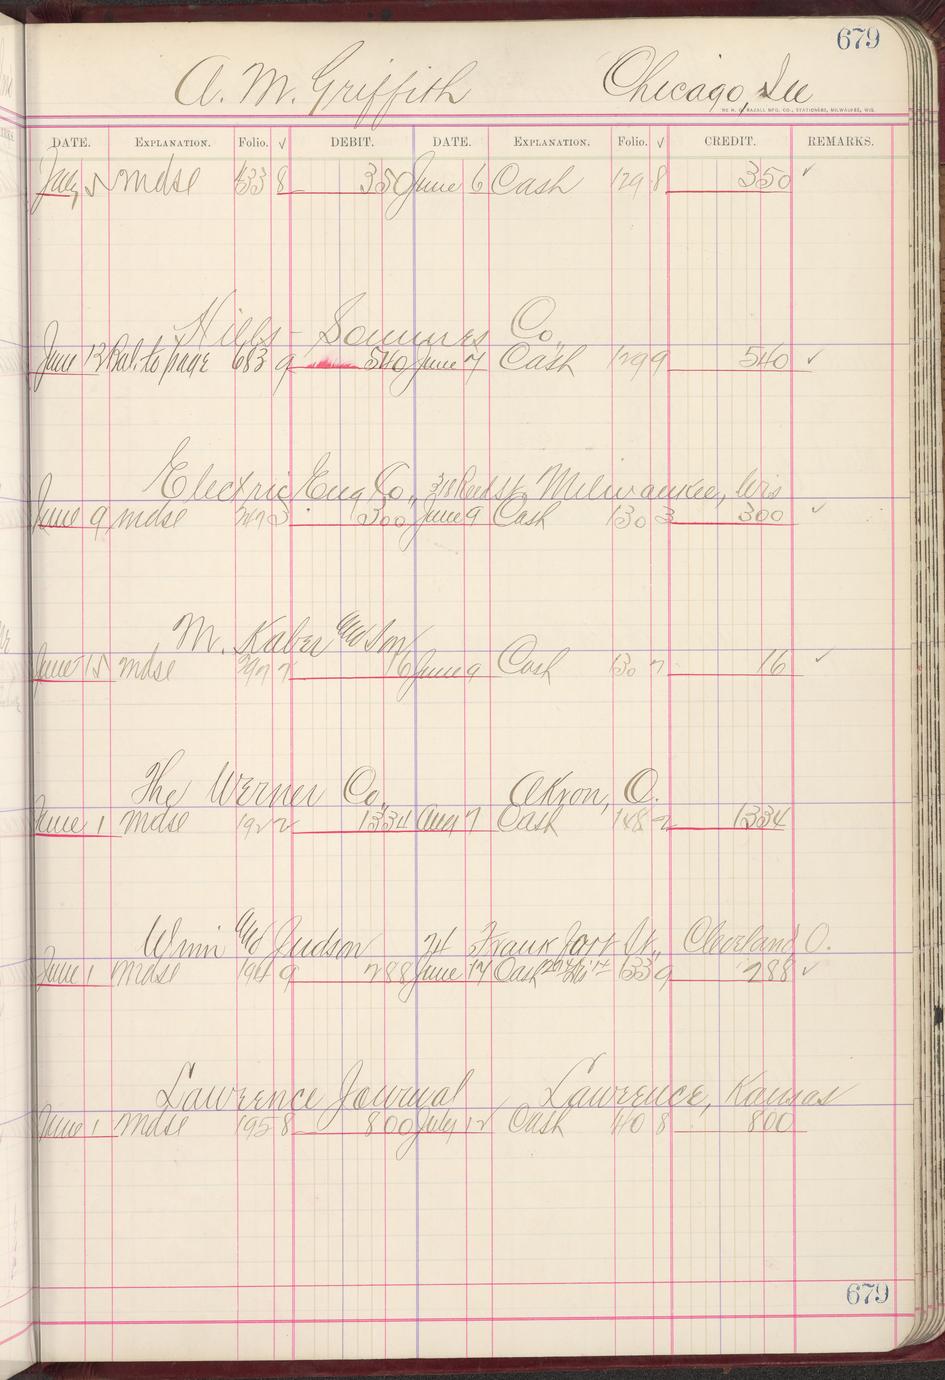 679
A. M. Griffith Chicago, Ill
THE H. G. RAZALL MFG. CO., STATIONERS, MILWAUKEE, WIS.
DATE. EXPLANATION. Folio. √ DEBIT. DATE. EXPLANATION. Folio. √ CREDIT. REMARKS.
5 mdse 133 8 350 June 6 Cash 129 8 350 ✓
Hills- Co.,
June 13 Bal. to page 683 9 540 June 7 Cash 129 9 540 ✓
Electric Eng Co., 318 Reed St. Milwaukee, Wis
June 9 mdse 3 300 June 9 Cash 130 3 300 ✓
M. Kaber and Son
June 15 mdse 7 16 June 9 Cash 130 7 16 ✓
The Werner Co., Akron, O.
June 1 mdse 192 2 1334 Aug 7 Cash 148 2 1334
Winn and Judson 24 Frankfort St., Cleveland O.
June 1 mdse 194 9 288 June 14 Cash 133 9 288 ✓
Lawrence Journal Lawrence, Kansas
June 1 mdse 195 8 800 July 12 Cash 140 8 800
679